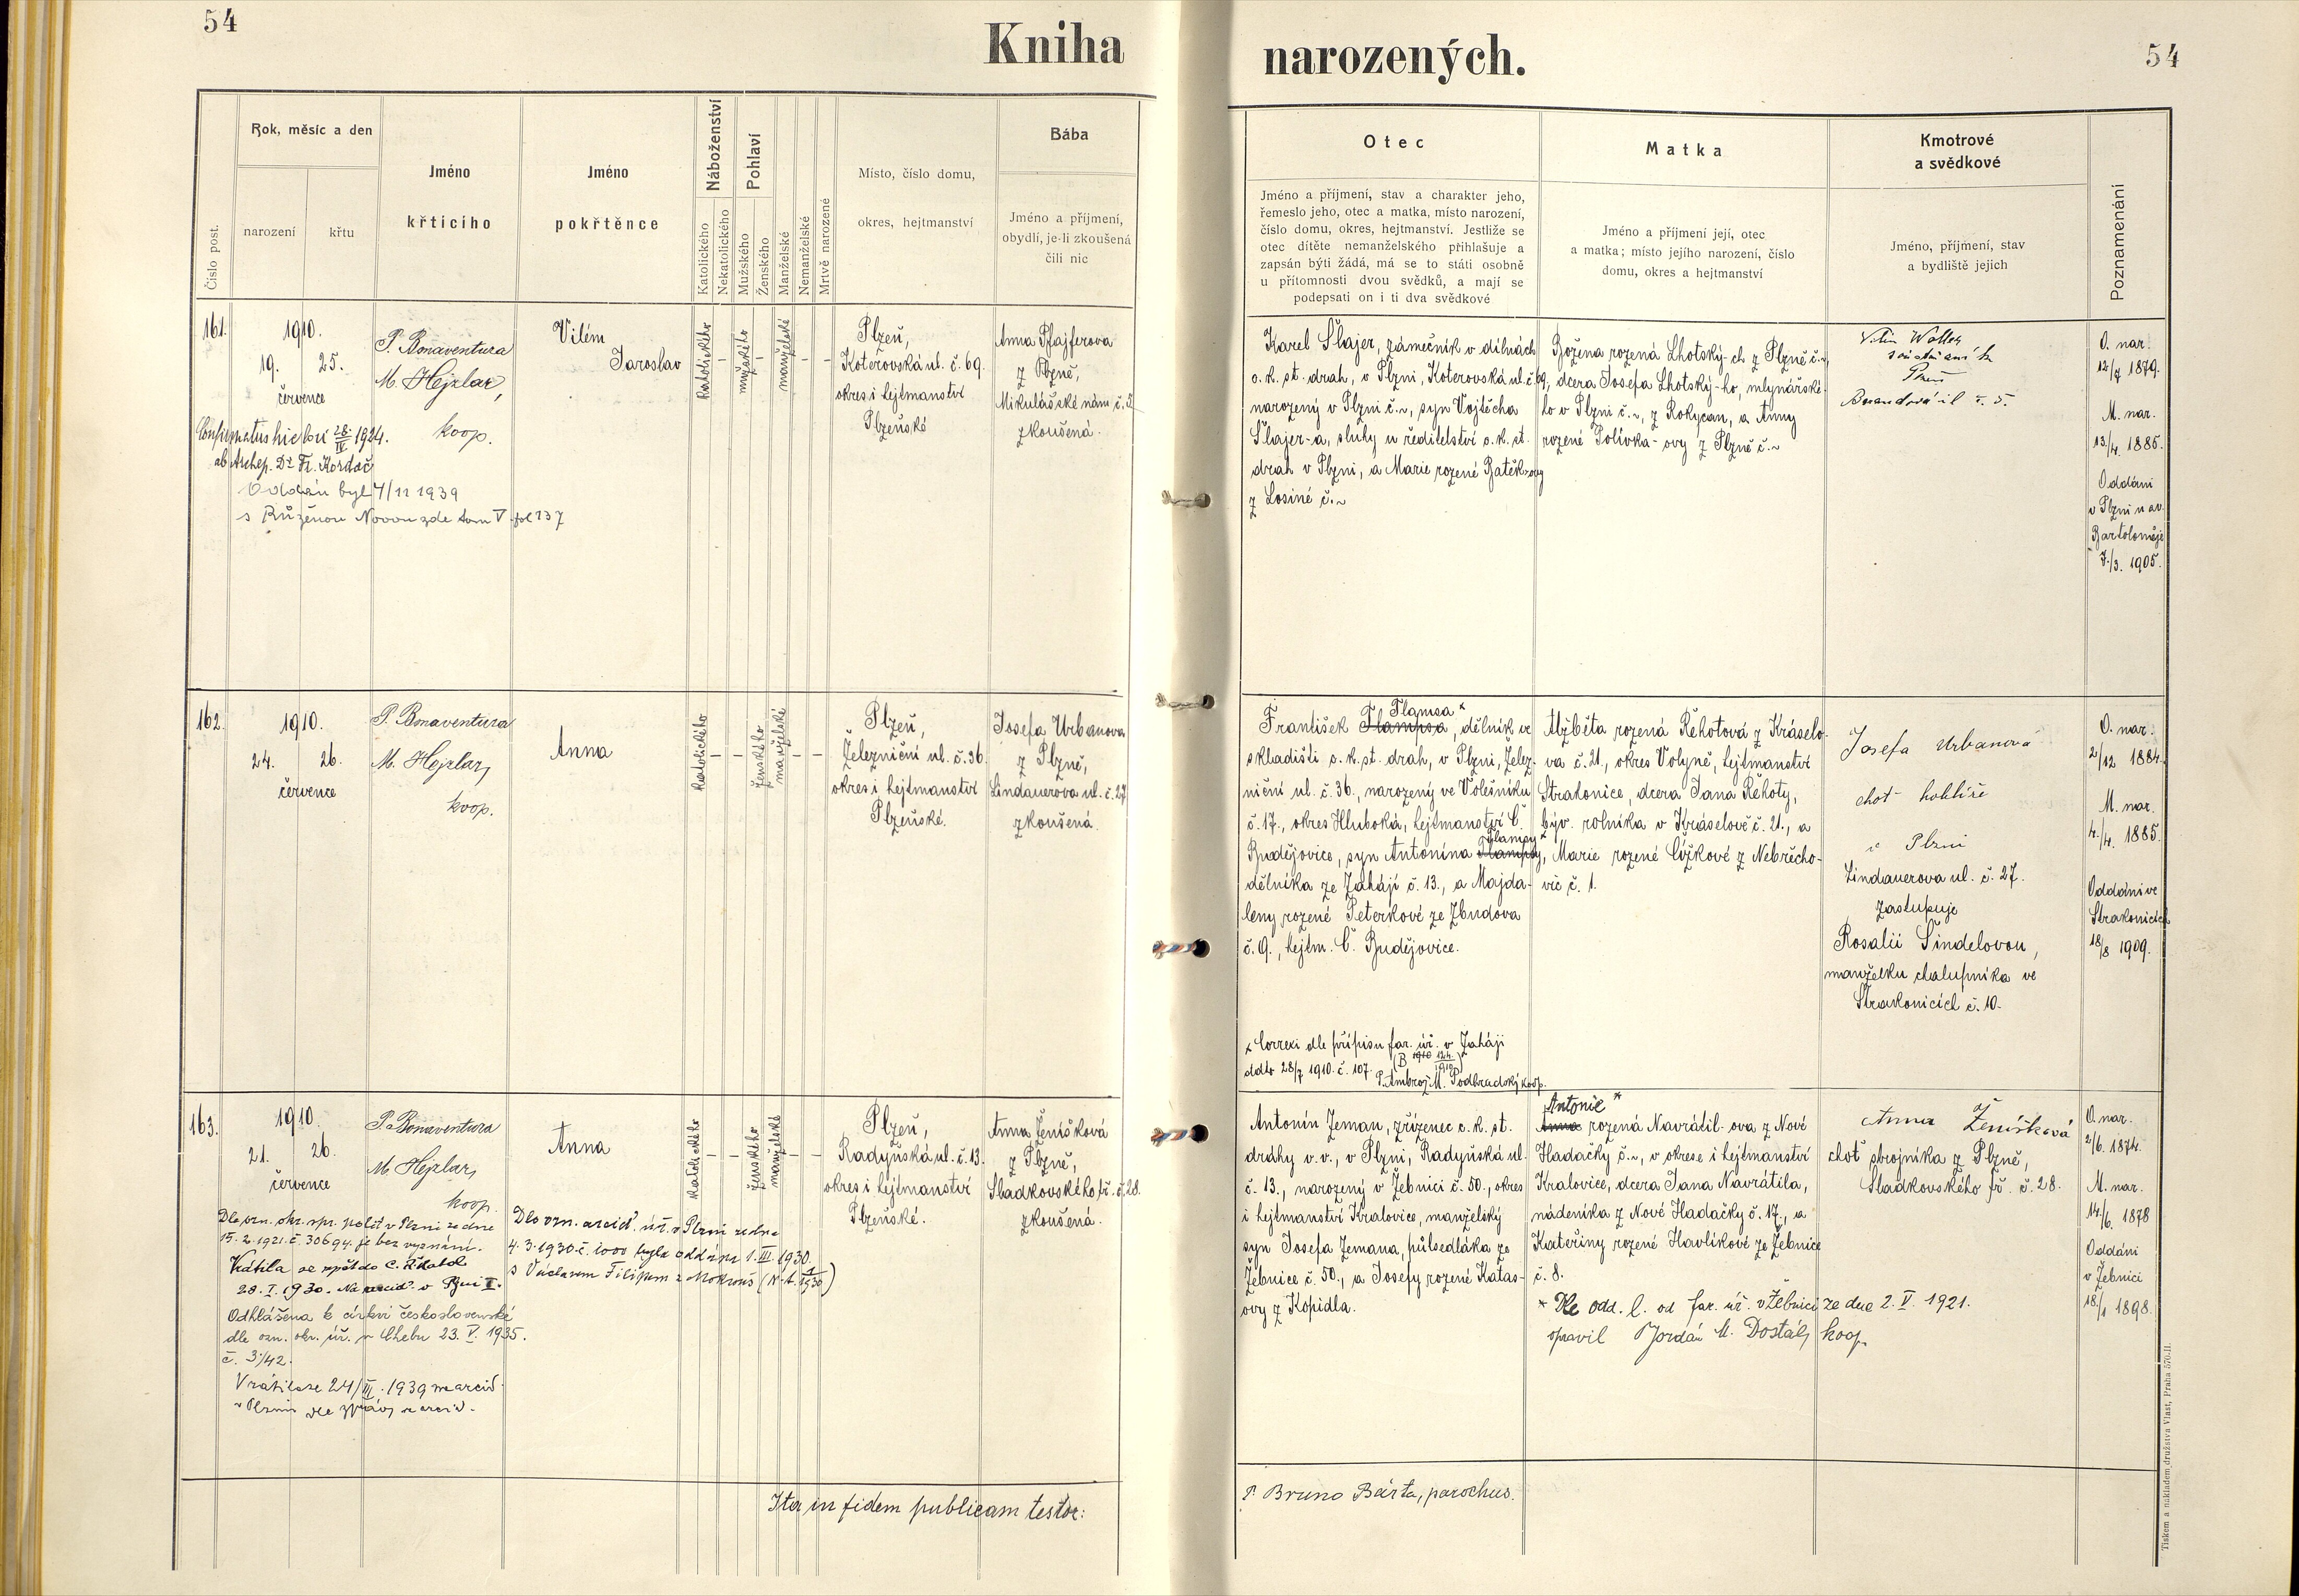 54
Kniha
narozených.
54
Číslo post.
Rok, měsíc a den
narození
křtu
Jméno
křticího
Jméno
pokřtěnce
Náboženství
Katolického
Nekatolického
Pohlaví
Mužského
Ženského
Manželské
Nemanželské
Mrtvě narozené
Místo, číslo domu,
okres, hejtmanství
Bába
Jméno a příjmení,
obydlí, je-li zkoušená
čili nic
Otec
Jméno a příjmení, stav a charakter jeho,
řemeslo jeho, otec a matka, místo narození,
číslo domu, okres, hejtmanství. Jestliže se
otec dítěte nemanželského přihlašuje a
zapsán býti žádá, má se to státi osobně
u přítomnosti dvou svědků, a mají se
podepsati on i ti dva svědkové
Matka
Jméno a příjmení její, otec
a matka; místo jejího narození, číslo
domu, okres a hejtmanství
Kmotrové
a svědkové
Jméno, příjmení, stav
a bydliště jejich
Poznamenání
161.
1910.
19. 25.
července
P. Bonaventura
M. Hejzlar,
koop.
Confirmatus hic loci 28./IV 1924.
ab Archep. Dr Fr. Kordač
Oddán byl 4/11 1939
s Růženou Novou zde tom V fol 137
Vilém
Jaroslav
Katolického
mužského
manželské
Plzeň,
Koterovská ul. č. 69.
okres i hejtmanství
Plzeňské
Anna Pfajferova
z Plzně,
Mikulášské nám. č. 5
zkoušená.
Karel Šlajer, zámečník v dílnách
c. k. st. drah, v Plzni, Koterovská ul. č. 69,
narozený v Plzni č. ~, syn Vojtěcha
Šlajer-a, sluhy u ředitelství c. k. st.
drah v Plzni, a Marie rozené Batěk-ovy
z Losiné č. ~
Božena rozená Lhotský-ch z Plzně č. ~,
dcera Josefa Lhotský-ho, mlynářské-
ho v Plzni č. ~, z Rokycan, a Anny
rozené Polívka-ovy z Plzně č. ~
O. nar.
12/7 1879.
M. nar.
13./4. 1885.
Oddáni
v Plzni u sv.
Bartoloměje
7./3. 1905.
162.
1910.
24. 26.
července
P. Bonaventura
M. Hejzlar,
koop.
Anna
Katolického
ženského
manželské
Plzeň,
Železniční ul. č. 36.
okres i hejtmanství
Plzeňské.
Josefa Urbanova
z Plzně,
Lindauerova ul. č. 27
zkoušená.
Flamsa x
František Flampsa, dělník ve
skladišti c. k. st. drah, v Plzni, Želez-
niční ul. č. 36., narozený ve Volešníku
č. 17., okres Hluboká, hejtmanství Č.
Flamsy x
Budějovice, syn Antonína Flampsy,
dělníka ze Zahájí č. 13., a Majda-
leny rozené Peterkové ze Zbudova
č. 9., hejtm. Č. Budějovice.
x Correxi dle přípisu far. úř. v Zaháji
ddto 28/7 1910. č. 107.
P. Ambrož M. Podhradský koop.
Alžběta rozená Řehotová z Kráselo-
va č. 21., okres Volyně, hejtmanství
Strakonice, dcera Jana Řehoty,
býv. rolníka v Kráselově č. 21., a
Marie rozené Čížkové z Nebřecho-
vic č. 1.
Josefa Urbanová
choť
v Plzni
Lindauerova ul. č. 27.
zastupuje
Rosalii Šindelovou,
manželku chalupníka ve
Strakonicích č. 10.
O. nar.
2/12 1884.
M. nar.
4./4. 1885.
Oddáni ve
Strakonicích
18/8 1909.
163.
1910.
21. 26.
července
P. Bonaventura
M. Hejzlar,
koop.
Dle ozn. okr. spr. polit v Plzni ze dne
15. 2. 1921. č. 30694. je bez vyznání.
Vrátila se zpět do C. Řkatol
28. I. 1930. Na arcid. v Plzni I.
Odhlášena k církvi československé
dle ozn. okr. úř. v Chebu 23. V. 1935.
Vrátila se 24/III. 1939 na arcid.
v Plzni dle zprávy arcid.
Anna
Dle ozn. arcid. úř. v Plzni ze dne
4. 3. 1930. č. 1000 byla oddána 1. III. 1930.
s Václavem Filipem z Mokrouš
Katolického
ženského
manželské
Plzeň,
Radyňská ul. č. 13.
okres i hejtmanství
Plzeňské.
Anna Ženíšková
z Plzně,
Sladkovského tř. č. 28.
zkoušená.
Antonín Zeman, zřízenec c. k. st.
dráhy v. v., v Plzni, Radyňská ul.
č. 13., narozený v Žebnici č. 50., okres
i hejtmanství Kralovice, manželský
syn Josefa Zemana, půlsedláka ze
Žebnice č. 50., a Josefy rozené Katas-
ovy z Kopidla.
Antonie *
Anna rozená Navrátil-ova z Nové
Hadačky č. ~, v okrese i hejtmanství
Kralovice, dcera Jana Navrátila,
nádeníka z Nové Hadačky č. 17., a
Kateřiny rozené Havlíkové ze Žebnice
č. 8.
* Dle odd. l. od far. úř. v Žebnici ze dne 2. V. 1921.
opravil Jordán M. Dostál, koop.
Anna Ženíšková
choť strojníka z Plzně,
Sladkovského tř. č. 28.
O. nar.
2/6. 1874.
M. nar.
14./6. 1878
Oddáni
v Žebnici
18./1 1898.
Ita in fidem publicam testor:
P. Bruno Bárta, parochus.
Tiskem a nákladem družstva Vlast, Praha 570-II.